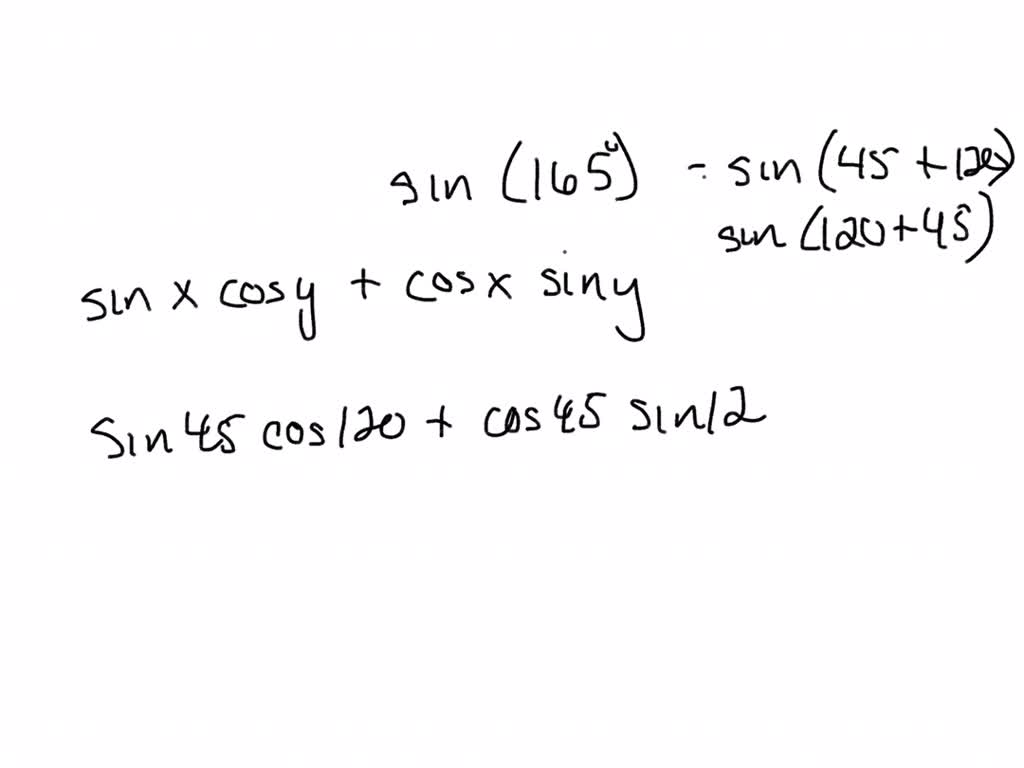 sin (165°) = sin (45 + 120)
sin (120 + 45)
sin x cos y + cos x sin y
sin 45 cos 120 + cos 45 sin 12